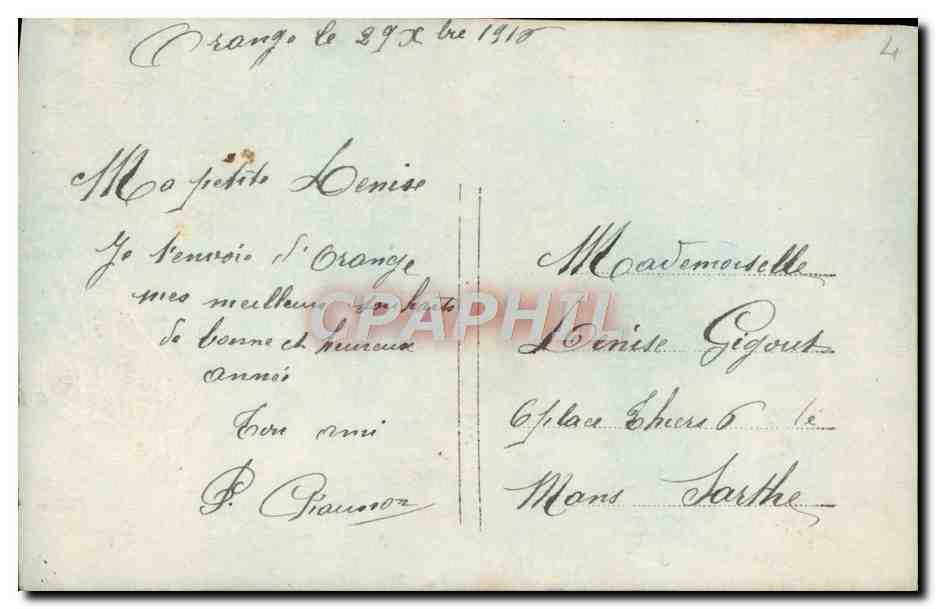 Orange le 29 Xbre 1918
4
Ma petite Denise
Je t'envoie d'Orange
mes meilleurs souhaits
de bonne et heureux
année
Ton ami
P.
CPARAMA
Mademoiselle
Denise Gigout
6 place Thiers 6 le
Mans Sarthe